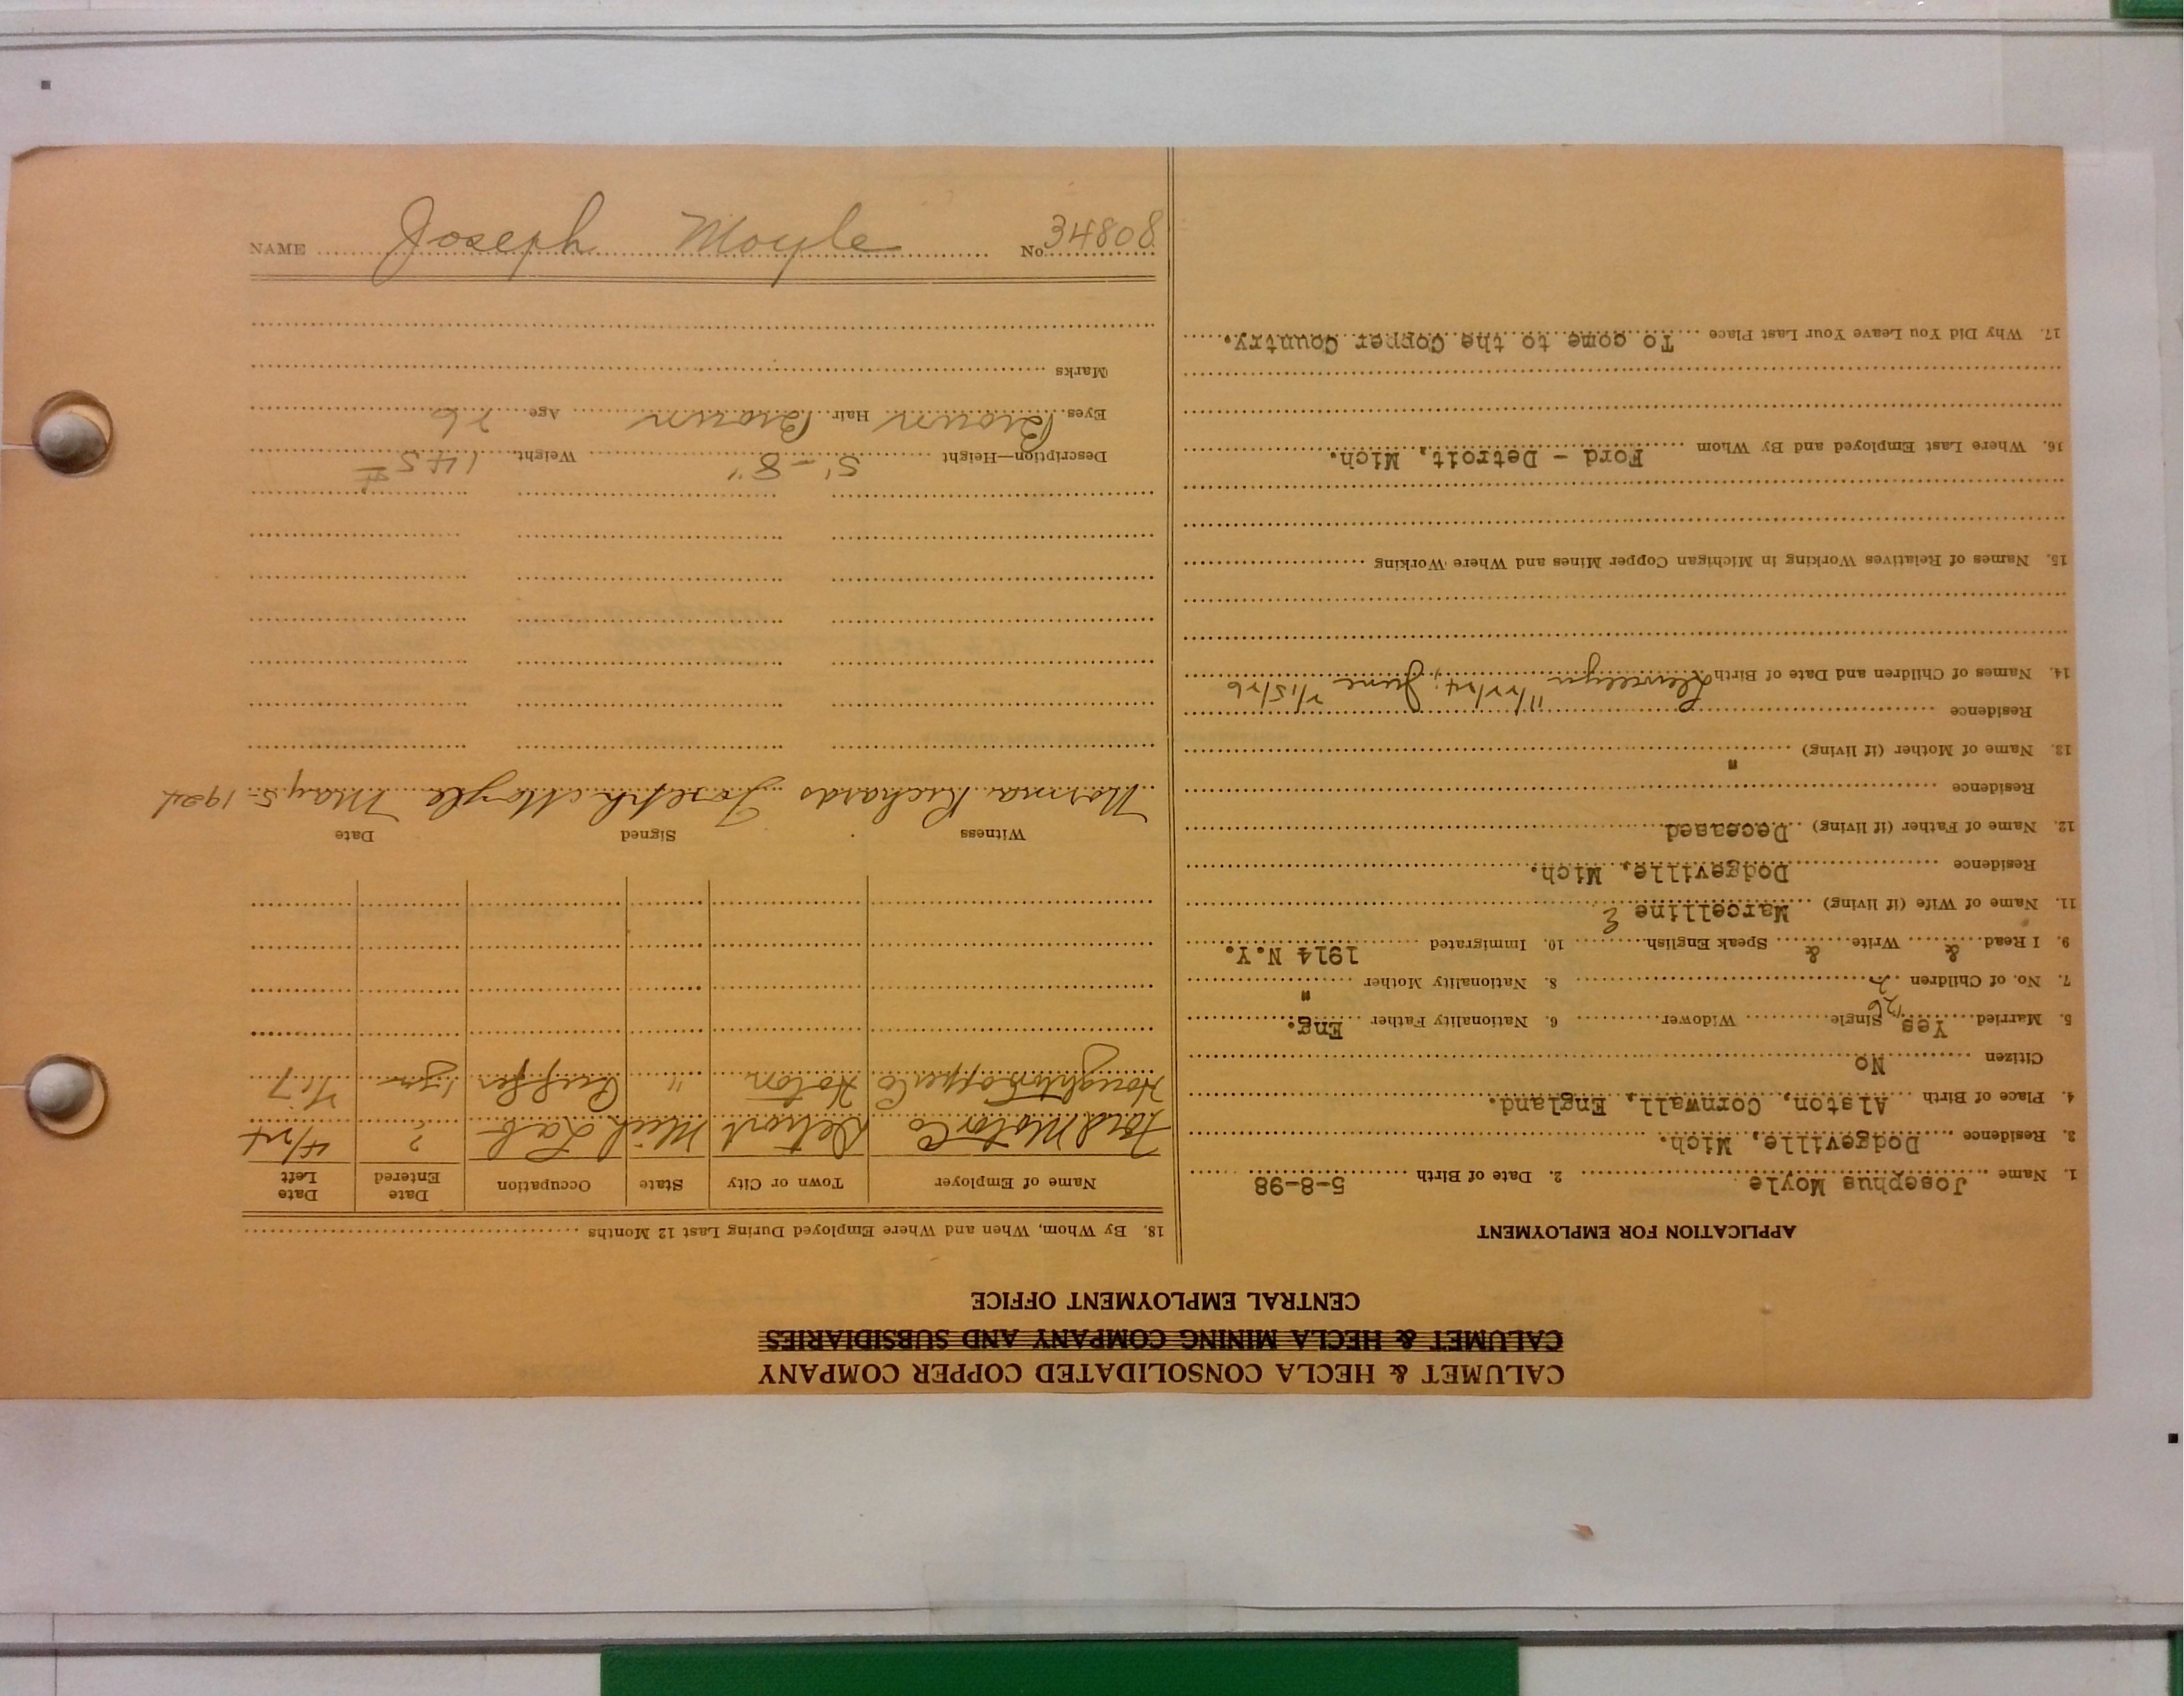 CALUMET & HECLA CONSOLIDATED COPPER COMPANY
CALUMET & HECLA MINING COMPANY AND SUBSIDIARIES
CENTRAL EMPLOYMENT OFFICE
APPLICATION FOR EMPLOYMENT
1. Name Josephus Moyle 2. Date of Birth 5-8-98
3. Residence Dodgeville, Mich.
4. Place of Birth Alston, Cornwall, England.
Citizen No
5. Married Yes Single Widower 6. Nationality Father Eng.
7. No. of Children 2 8. Nationality Mother "
9. I Read & Write & Speak English 10. Immigrated 1914 N.Y.
11. Name of Wife (if living) Marcelline
Residence Dodgeville, Mich.
12. Name of Father (if living) Deceased
Residence
13. Name of Mother (if living) "
Residence
14. Names of Children and Date of Birth Llewellyn 11/22/24; June 2/15/26
15. Names of Relatives Working in Michigan Copper Mines and Where Working
16. Where Last Employed and By Whom Ford - Detroit, Mich.
17. Why Did You Leave Your Last Place To come to the Copper Country.
18. By Whom, When and Where Employed During Last 12 Months
Name of Employer Town or City State Occupation Date Entered Date Left
Ford Motor Co Detroit Mich Lab ? 4/24
Houghton Copper Co Hoton " 1 yr 7/17
Witness Signed Date
Norma Richards Joseph Moyle May 5- 1924
Description—Height 5'-8" Weight 145 #
Eyes Brown Hair Brown Age 26
Marks
NAME Joseph Moyle No. 34808